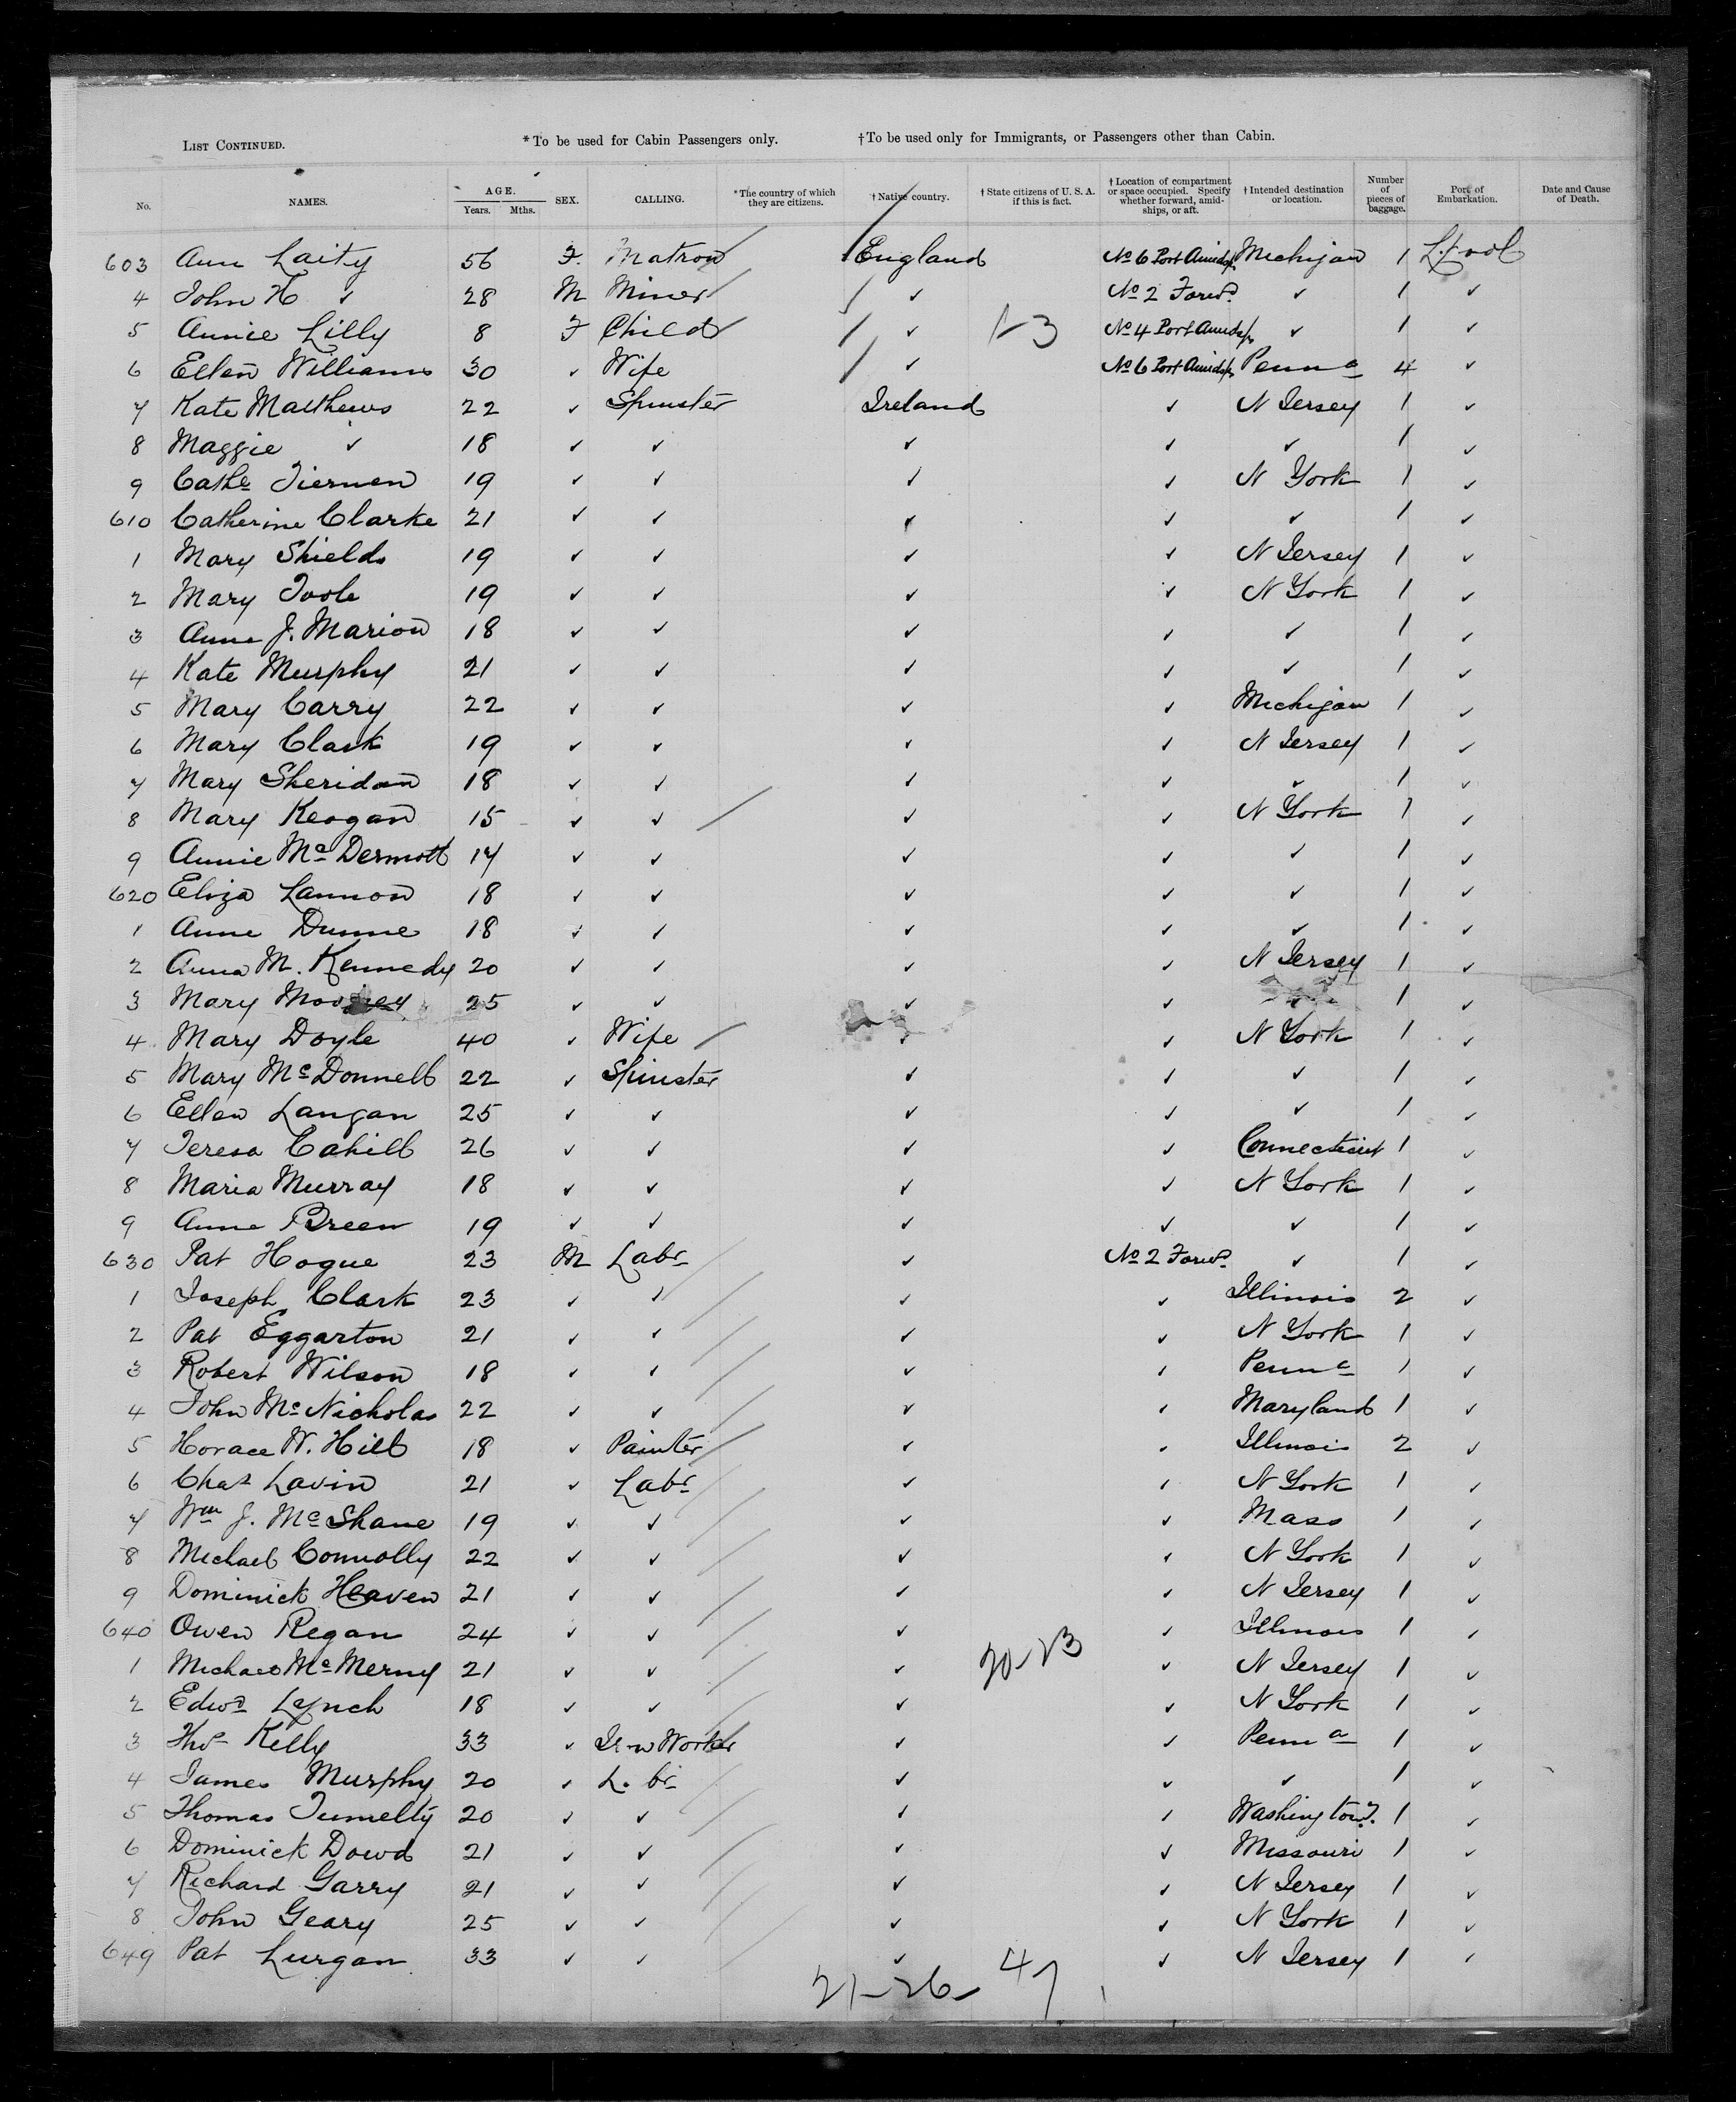 LIST CONTINUED. *To be used for Cabin Passengers only. †To be used only for Immigrants, or Passengers other than Cabin.
No. NAMES. AGE. Years. Mths. SEX. CALLING. *The country of which they are citizens. †Native country. †State citizens of U. S. A. if this is fact. †Location of compartment or space occupied. Specify whether forward, amidships, or aft. †Intended destination or location. Number of pieces of baggage. Port of Embarkation. Date and Cause of Death.
603 Ann Laity 56 F. Matron England No 6 Port Amidsps Michigan 1 L.pool
4 John H ✓ 28 M Miner ✓ No 2 Forwd. ✓ 1 ✓
5 Annie Lilly 8 F Child ✓ 1-3 No 4 Port Amidsps ✓ 1 ✓
6 Ellen Williams 30 ✓ Wife ✓ No 6 Port Amidsps Penna 4 ✓
7 Kate Matthews 22 ✓ Spinster Ireland ✓ N Jersey 1 ✓
8 Maggie ✓ 18 ✓ ✓ ✓ ✓ ✓ 1 ✓
9 Cathe Tiernen 19 ✓ ✓ ✓ ✓ N York 1 ✓
610 Catherine Clarke 21 ✓ ✓ ✓ ✓ ✓ 1 ✓
1 Mary Shields 19 ✓ ✓ ✓ ✓ N Jersey 1 ✓
2 Mary Toole 19 ✓ ✓ ✓ ✓ N York 1 ✓
3 Anne J. Marion 18 ✓ ✓ ✓ ✓ ✓ 1 ✓
4 Kate Murphy 21 ✓ ✓ ✓ ✓ ✓ 1 ✓
5 Mary Carry 22 ✓ ✓ ✓ ✓ Michigan 1 ✓
6 Mary Clark 19 ✓ ✓ ✓ ✓ N Jersey 1 ✓
7 Mary Sheridan 18 ✓ ✓ ✓ ✓ ✓ 1 ✓
8 Mary Keogan 15 ✓ ✓ ✓ ✓ N York 1 ✓
9 Annie McDermott 17 ✓ ✓ ✓ ✓ ✓ 1 ✓
620 Eliza Lannon 18 ✓ ✓ ✓ ✓ ✓ 1 ✓
1 Anne Dunne 18 ✓ ✓ ✓ ✓ ✓ 1 ✓
2 Anna M. Kennedy 20 ✓ ✓ ✓ ✓ N Jersey 1 ✓
3 Mary 25 ✓ ✓ ✓ ✓ ✓ 1 ✓
4 Mary Doyle 40 ✓ Wife ✓ ✓ N York 1 ✓
5 Mary McDonnell 22 ✓ Spinster ✓ ✓ ✓ 1 ✓
6 Ellen Langan 25 ✓ ✓ ✓ ✓ ✓ 1 ✓
7 Teresa Cahill 26 ✓ ✓ ✓ ✓ Connecticut 1 ✓
8 Maria Murray 18 ✓ ✓ ✓ ✓ N York 1 ✓
9 Anne Breen 19 ✓ ✓ ✓ ✓ ✓ 1 ✓
630 Pat Hogue 23 M Labr ✓ No 2 Forwd. ✓ 1 ✓
1 Joseph Clark 23 ✓ ✓ ✓ ✓ Illinois 2 ✓
2 Pat Eggarton 21 ✓ ✓ ✓ ✓ N York 1 ✓
3 Robert Wilson 18 ✓ ✓ ✓ ✓ Penna 1 ✓
4 John McNicholas 22 ✓ ✓ ✓ ✓ Maryland 1 ✓
5 Horace W. Hill 18 ✓ Painter ✓ ✓ Illinois 2 ✓
6 Chas Lavin 21 ✓ Labr ✓ ✓ N York 1 ✓
7 Wm J. McShane 19 ✓ ✓ ✓ ✓ Mass 1 ✓
8 Michael Connolly 22 ✓ ✓ ✓ ✓ N York 1 ✓
9 Dominick Heaven 21 ✓ ✓ ✓ ✓ N Jersey 1 ✓
640 Owen Regan 24 ✓ ✓ ✓ ✓ Illinois 1 ✓
1 Michael McMerny 21 ✓ ✓ ✓ 20-23 ✓ N Jersey 1 ✓
2 Edwd Lynch 18 ✓ ✓ ✓ ✓ N York 1 ✓
3 Thos Kelly 33 ✓ Iron Worker ✓ ✓ Penna 1 ✓
4 James Murphy 20 ✓ Labr ✓ ✓ ✓ 1 ✓
5 Thomas Tumelty 20 ✓ ✓ ✓ ✓ Washington?. 1 ✓
6 Dominick Dowd 21 ✓ ✓ ✓ ✓ Missouri 1 ✓
7 Richard Garry 21 ✓ ✓ ✓ ✓ N Jersey 1 ✓
8 John Geary 25 ✓ ✓ ✓ ✓ N York 1 ✓
649 Pat Lurgan 33 ✓ ✓ ✓ ✓ N Jersey 1 ✓
21-26- 47